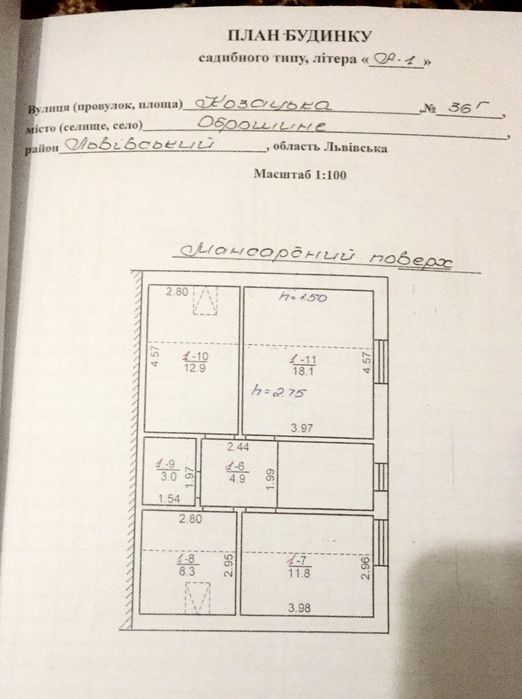 ПЛАН БУДИНКУ
садибного типу, літера « А-1 »
Вулиця (провулок, площа) Козацька ,№ 36Г ,
місто (селище, село) Оброшине ,
район Львівський , область Львівська
Масштаб 1:100
Мансардний поверх
2.80
h=1.50
4.57
1-10
12.9
1-11
18.1
4.57
h=2.75
3.97
2.44
1-9
3.0
1.97
1-6
4.9
1.99
1.54
2.80
1-8
8.3
2.95
1-7
11.8
2.96
3.98